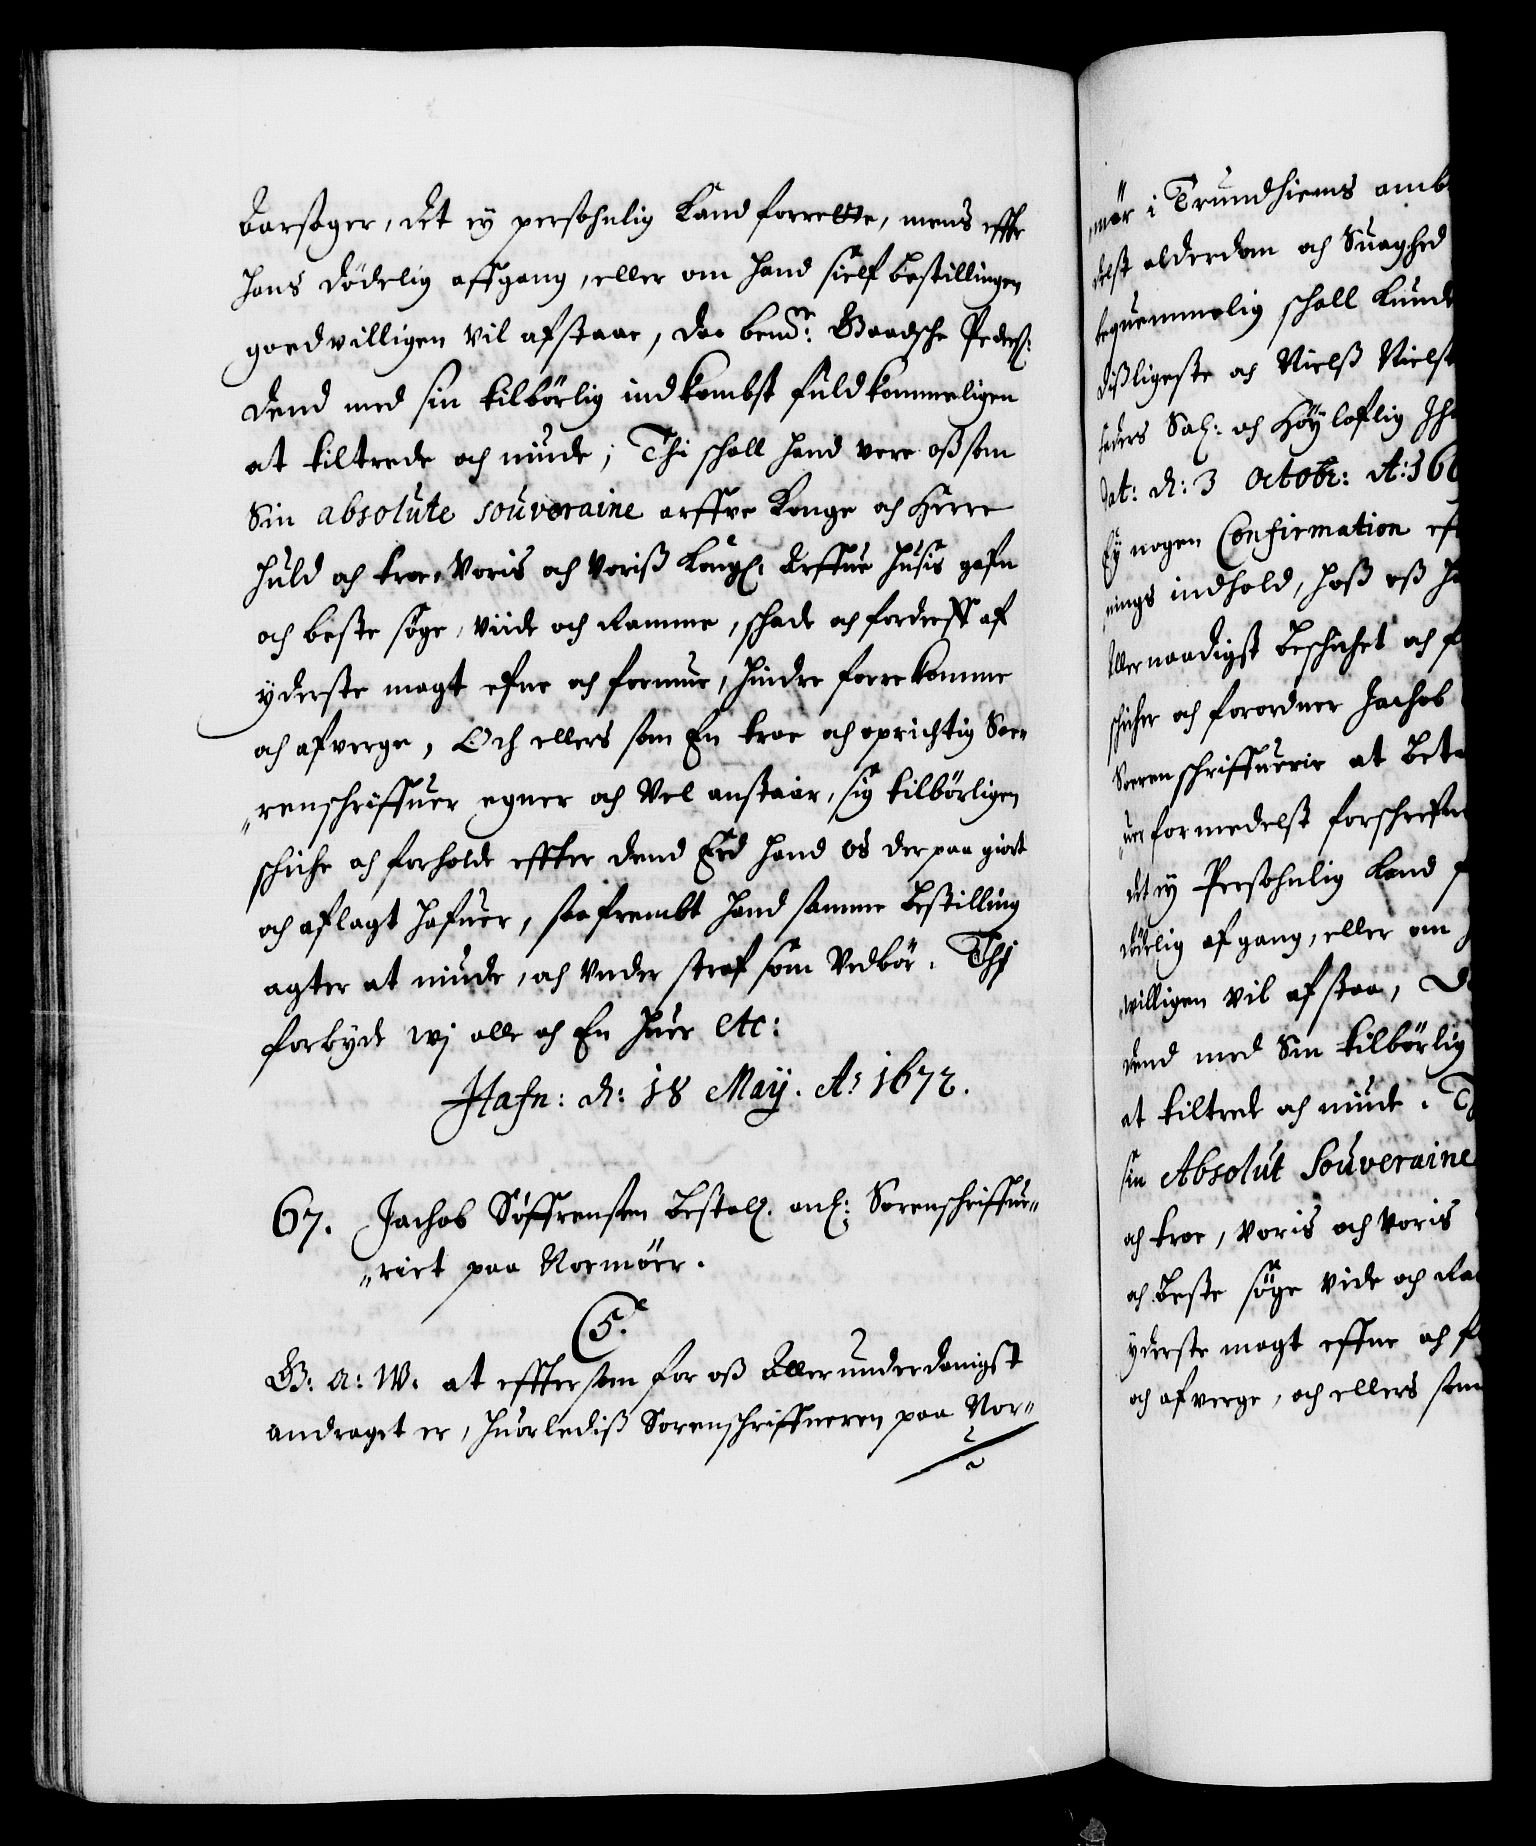 aarsager, det ey persohnlig kand forrette, mens effter
hans dödelig affgang, eller om hand sielf bestillingen
goedvilligen vil afstaae, da bem.te Baadsche Peders:
dend med sin tilbörlig indkombst fuldkommeligen
at tiltrede och niude; Thi schall hand vere os som
Sin absolute souveraine arffve Konge och Herre
huld och troe, Voris och Voriß Kongl. Arffue Husis gafn
och beste söge, viide och ramme, schade och fordreff af
yderste magt efne och formue, hindre forrekomme
och afverge, Och ellers som En troe och oprichtig Soe-
"renschriffuer egner och Vel anstaar, sig tilbörligen
schiche och forholde effter dend Eed hand os derpaa giort
och aflagt hafuer, saafrembt hand samme bestilling
agter at niude, och under straf som Vedbör. Thj
forbyde wj alle och En huer etc:
Hafn: d: 18 May. Ao 1672.
67. Jachob Söffrensen bestall. anl: Sorenschriffue-
"riet paa Normöer.
C5.
G: A: W. at efftersom for oß Allerunderdanigst
andraget er, huorlediß Sorenschriffueren paa Nor-
"mör i Trundhiems amb
delst alderdom och Suaghed
bequemmelig schall kunde
dißligeste och Nielß Niels
faders Sal: och Höyloflig Ih
dat: d: 3 Octobr: A: 166
Ey nogen Confirmation ef
nings indhold, hoß oß h
Allernaadigst beschichet och f
schicher och forordner Jachob
Sorenschriffuerie at bet
"uer formedelst forschrefne
det ey Persohnlig kand f
dödelig afgang, eller om h
willigen vil afstaa, D
dend med Sin tilbörlig
at tiltrede och niude. T
sin Absolut Souveraine
och troe, Voris och Voris
och beste söge vide och Ra
yderste magt effne och f
och afverge, och ellers som